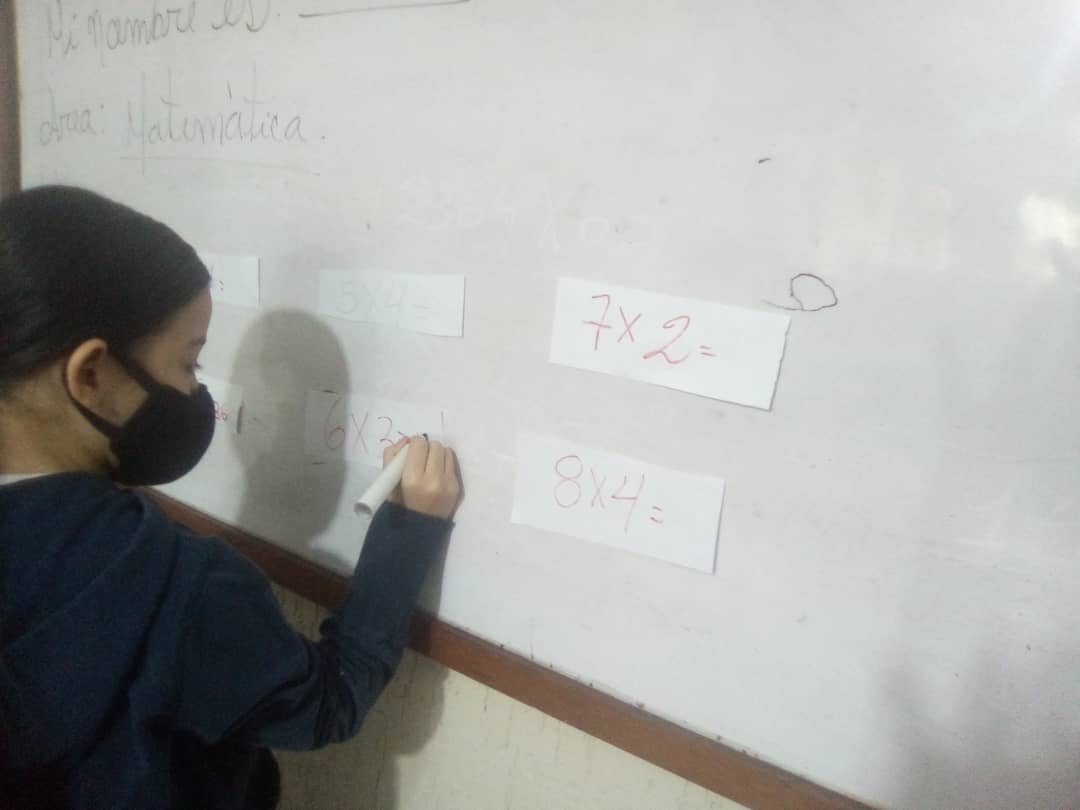 Mi nombre es:
Área: Matemática.
5x4=
7x2=
6x3=
8x4=